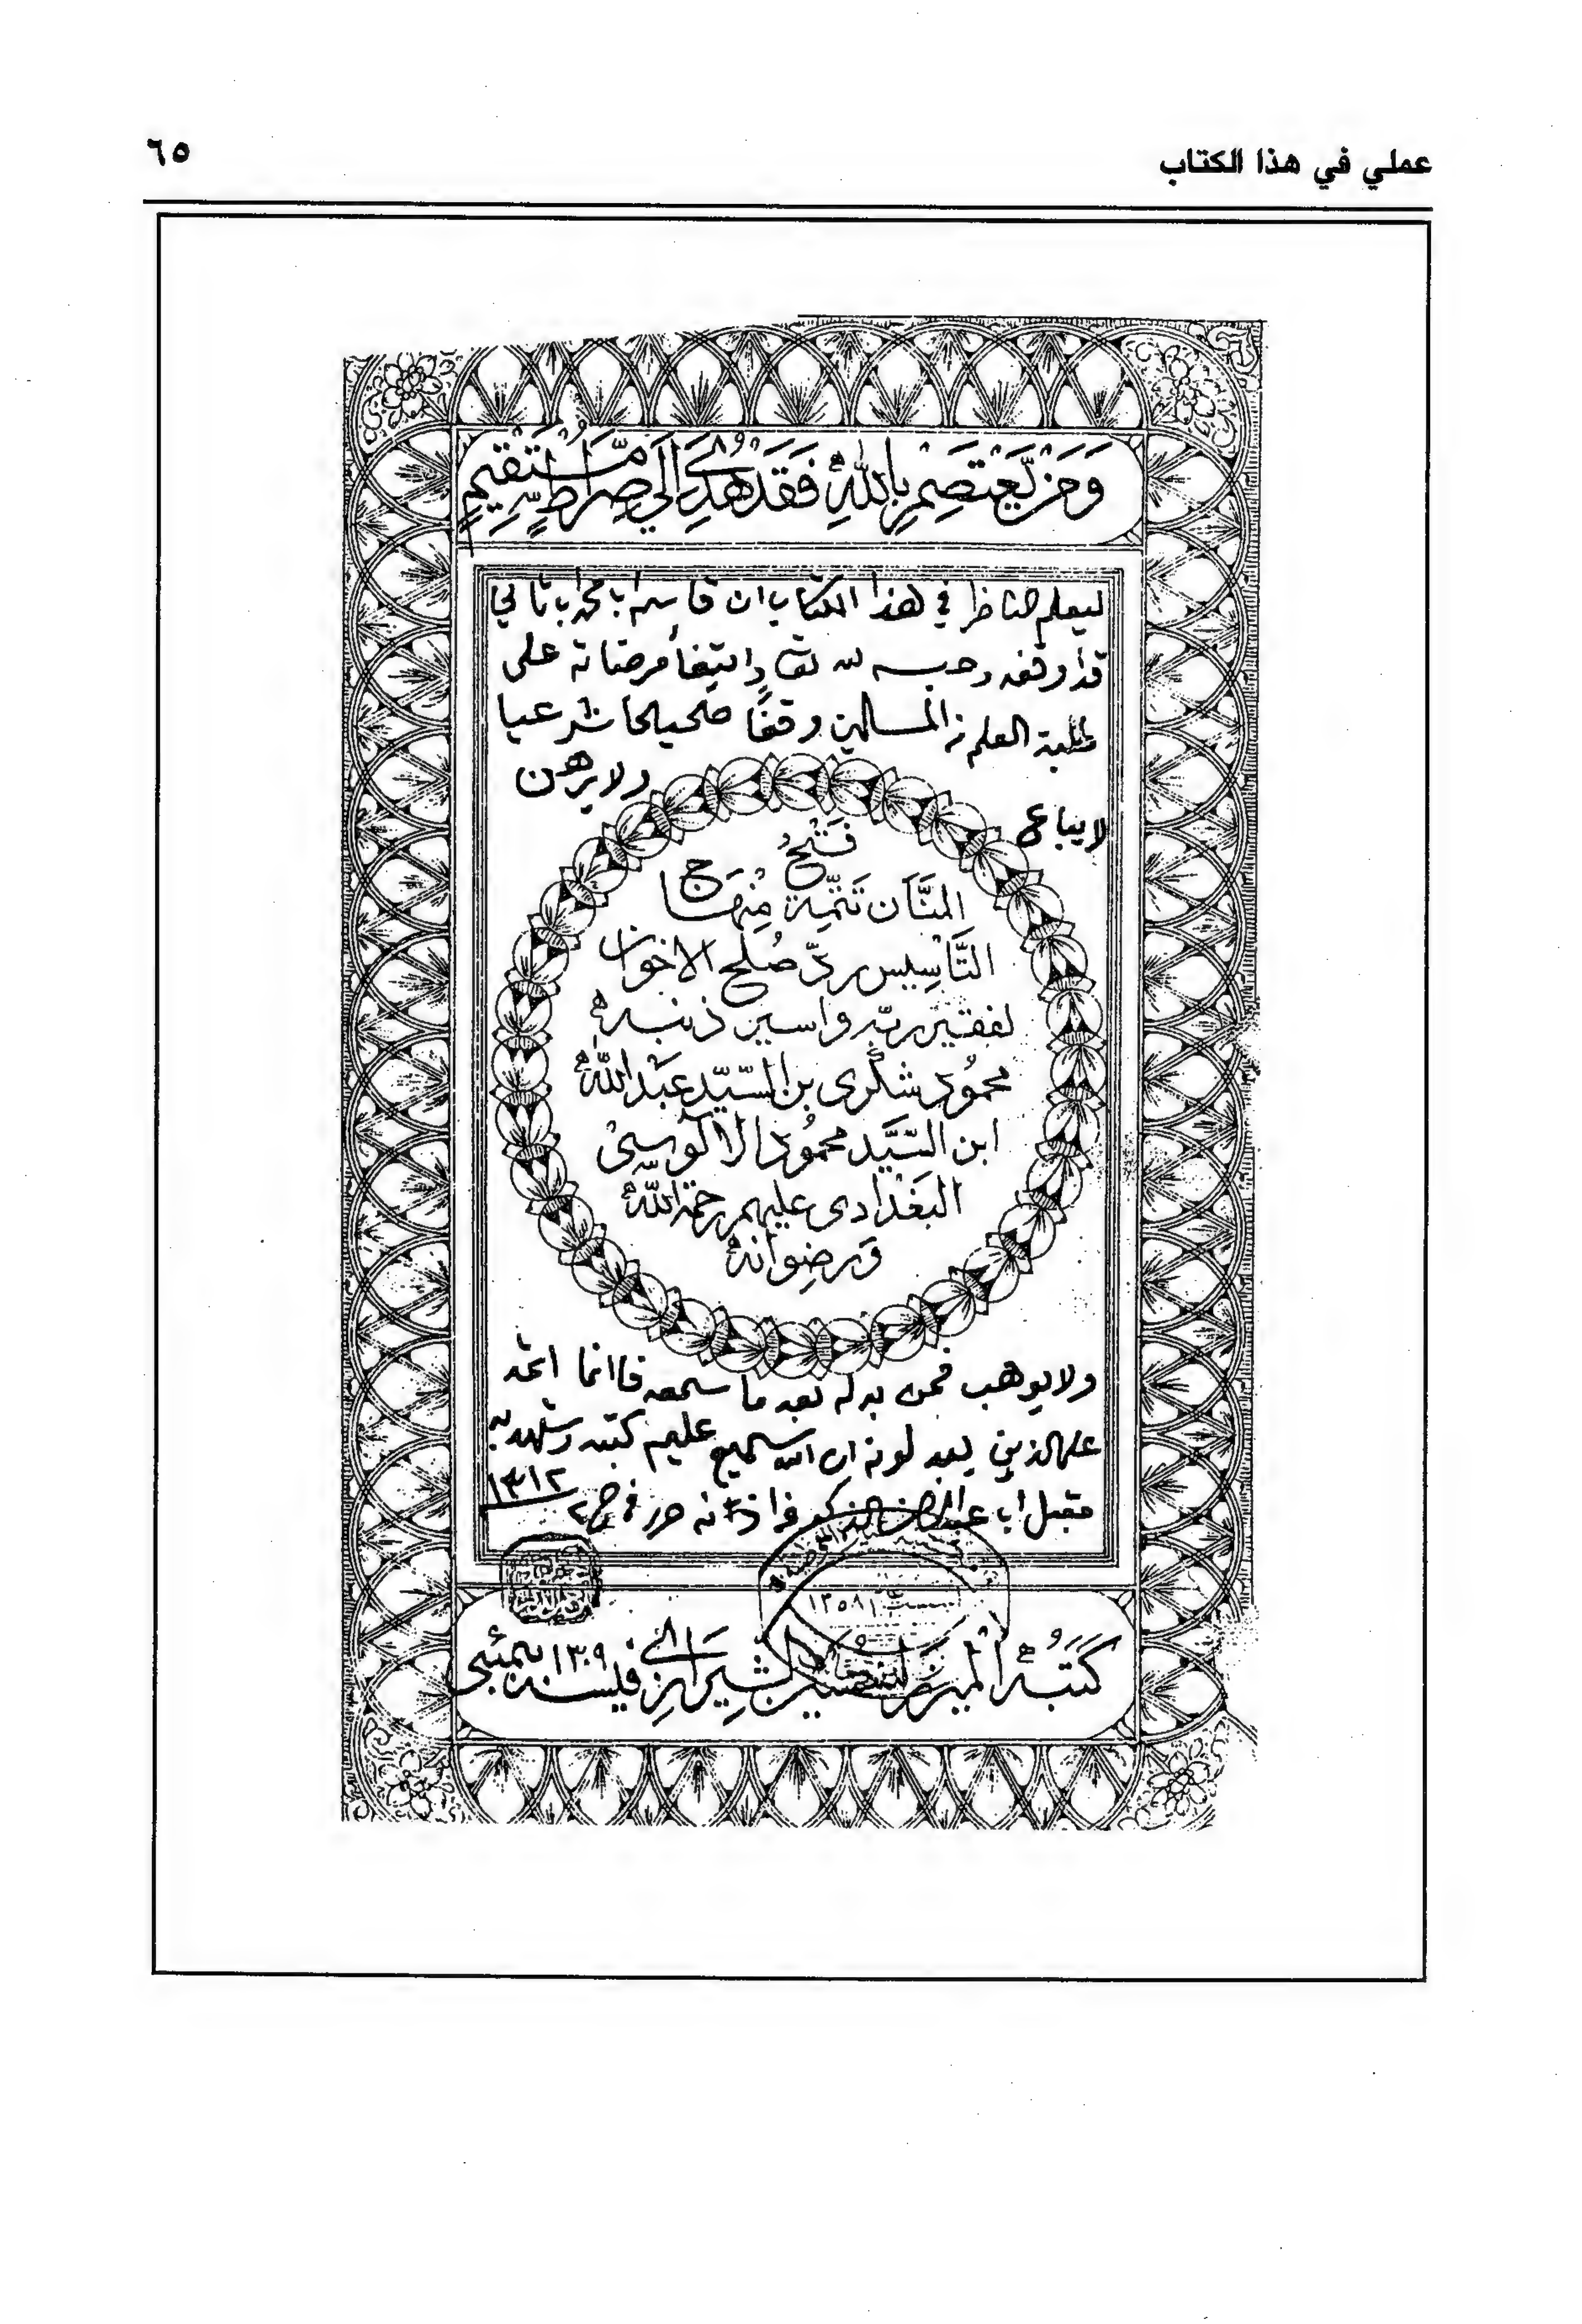 عملي في هذا الكتاب
٦٥
وَمَنْ يَعْتَصِمْ بِاللّٰهِ فَقَدْ هُدِىَ اِلٰى صِرَاطٍ مُّسْتَقِيمٍ
ليعلم الناظر في هذا الكتاب ان قاسم ابا محمد بن ثاني
قد اوقفه وحبسه لله تعا وابتغأ مرضاته على
طلبة العلم من المسلمين وقفًا صحيحا شرعيا
لا يباع ولا يرهن
فَتْحُ
المَنَّان تَتِمَّة مِنْهَاج
التَّأسِيس ردّ صُلح الاخوان
لفقير ربّه واسير ذنبه
محمُود شُكرى بن السّيّد عَبْد اللّٰه
ابن السَّيَّد محمُود الآلوسىْ
البَغْدادى عليهم رحمة اللّٰه
وَرضِوانه
ولا يوهب فمن بدله بعد ما سمعه فاانما اثمه
على الذين يبدلونه ان الله سميع عليم كتبه وشهد به
مقبل اب عبدالرحمن الذكير حرر في ١٣١٢
١٣٥٨
كَتَبُه الْميرزا الشيرازى فيسنه ١٣٠٩ بمبئى